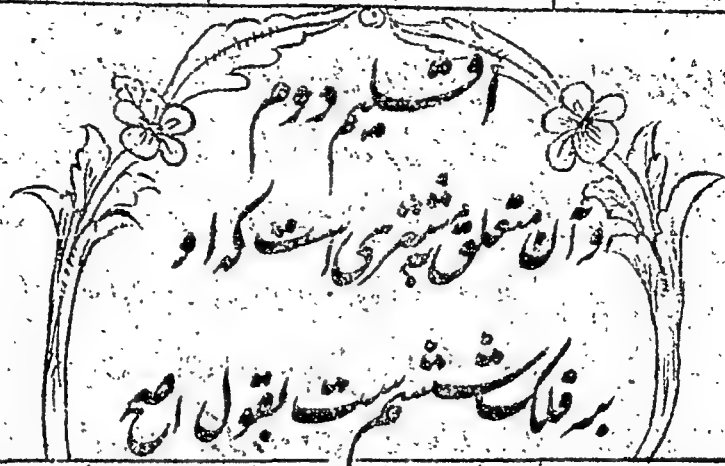 اقلیم دوم
و آن متعلق بمشتری است که او
بر فلک ششم ست بقول اصح